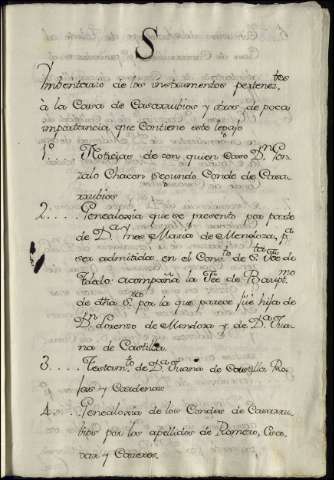 S
Ymbentario de los instrumentos pertenez.tes
à la Casa de Casarrubios y otros de poca
importancia que Contiene este legajo
1.º Noticias de con quien Caso D.n Gon
zalo Chacon segundo Conde de Casa
rrubios
2.... Genealoxia que se presento por parte
de D.a Ynes Maria de Mendoza, p.a
ser admitida en el Conv.to de S.ta Fee de
Toledo acompaña la Fee de Baptis.mo
de dha S.ra por la que parece fue hija de
D.n Lorenzo de Mendoza y de D.a Jua
na de Castilla
3.... Testam.to de D.a Juana de Castilla Ro
jas y Cardenas
4.... Genealoxia de los Condes de Casarru
bios por los apellidos de Romero,
y